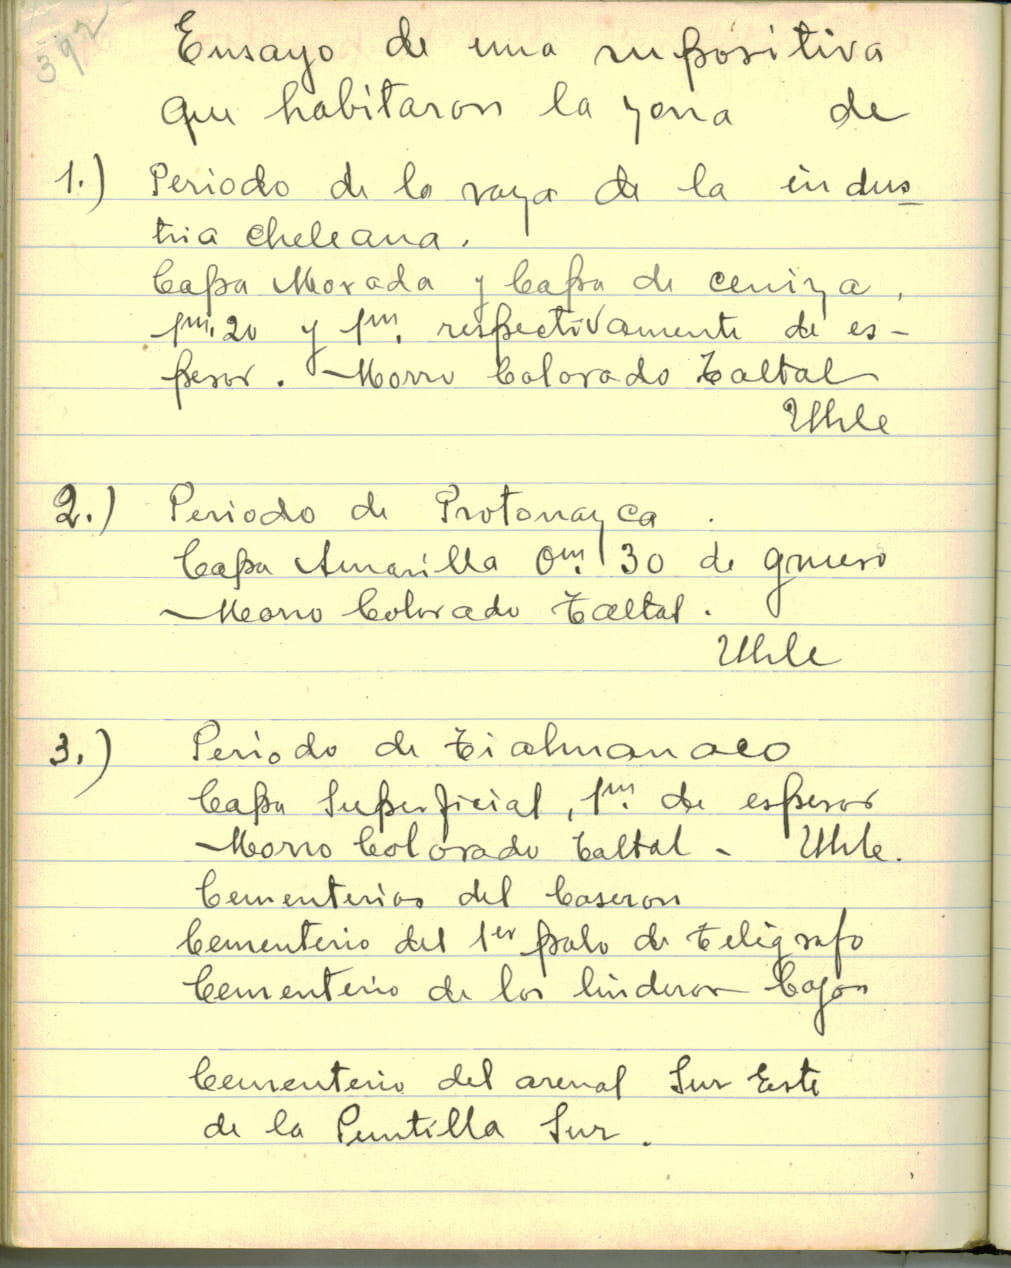 392
Ensayo de una supositiva
que habitaron la zona de
1.) Periodo de la raza de la indus
tria cheleana.
Capa Morada y Capa de ceniza,
1m.20 y 1m. respectivamente de es-
pesor. Morro Colorado Taltal
Uhle
2.) Periodo de Protonazca.
Capa Amarilla 0m.30 de grueso
Morro Colorado Taltal.
Uhle
3.) Periodo de Tiahuanaco
Capa Superficial, 1m. de espesor
Morro Colorado Taltal - Uhle.
Cementerios del Caseron
Cementerio del 1er palo de Telégrafo
Cementerio de los linderos Cajon
Cementerio del arenal Sur Este
de la Puntilla Sur.